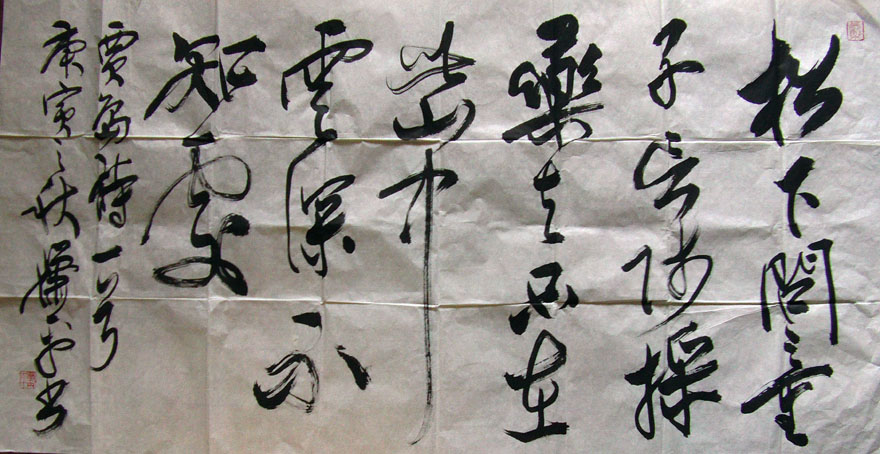 松下問童
子言師採
藥去只在
此山中
雲深不
知處
賈島詩一首
庚寅之秋 書